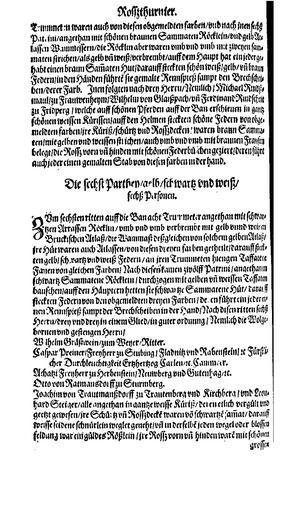 Roßthurnier.
Trummeter waren auch von diesen obgemeldten farben/ vnd nach jnen sechs
Patrini/ angethan mit schönen braunen Sammaten Röcklin/ vnd gelb At-
lassen Wammesern/ die Röcklin aber waren vmb vnd vmb mit zweyen sam-
maten strichen/ als gelb vñ weiß/ verbrembt/ auff dem Haupt hat ein jeder ge-
habt einen braun Sammaten Hut/ darauff steckten schön weiß/ gelb/ vñ braun
Federn/ in den Händen führt sie gemalte Rennspieß sampt den Brechschei-
ben/ derer Farb. Jnen folgten nach drey Herrn/ Nemlich/ Michael Rudt-
maul/ zu Frauwenheym/ Wilhelm von
zu Fridperg/ welche auff schönen Pferden auff der Ban erschienen in gantz
schönen weissen Kürissen/ auff den Helmen steckten schöne Federn von obge-
meldten farben/ jre Küriß/ schürtz vnd Roßzdecken/ waren braun Samma-
ten/ mit gelben vnd weissen strichen/ auch vmb vnd vmb mit braunen Fransen
belegt/ die Rossz vorn vñ hinden mit schönen Federbüschen gezieret/ deren führt
auch jeder einen gemalten Stab von diesen farben in der hand.
Die sechst Parthey/ gelb/ schwartz vnd weiß/
sechs Personen.
Zum sechsten ritten auff die Ban acht Trummeter angethan mit schwar-
tzen Atlassen Röcklin/ vmb vnd vmb verbrembt mit gelb vnd weissen
Bruckischen Atlaß/ die Wammaß deßgleichen von solchem gelben Atlaß/
jre Hüt waren auch von den vorgemeldten dreyen farben getheilt/ darauff steck-
ten gelb/ schwartz vnd weiß Federn/ an jren Trummeten hiengen Taffaten
Fanen von gleichen Farben/ Nach diesen kamen zwölff Patrini/ angethan in
schwartz Sammaten Röcklein/ durchzogen mit gelben vñ weissen Toffaten
bauschen/ auff den Häuptern hetten sie schwartz Sammaten Hüt/ darauff
steckten Federn von den obgemeldten dreyen Farben/ deren führt ein jeder ei-
nen Rennspieß sampt der Brechscheiben in der Hand/ Nach diesen ritten sechs
Herrn/ drey vnd drey in einem Glied/ in guter ordnung/ Nemlich die Wolge-
bornen vnd gestrengen Herrn/
Wilhelm Gräßwein/ zum Weyer/ Ritter.
Caspar Preiner/ Freyherr zu Stubing/ Fladnitz vnd Rabenstein/ rc Fürstli-
cher Durchleuchtigkeit Ertzhertzog Carlen/ rc. Cammerer.
Achatz/ Freyherr zu Herbenstein/ Neuwberg vnd Gutenhag/ rc.
Otto von Ratmanstorff zu Sturmberg.
Joachim von Trautmanßdorff zu Trautenberg vnd Kirchberg/ vnd Leon-
hard Steizer/ alle angethan in gantze weisse Küriß/ deren etlich vergült vnd
geetzt gewesen/ jre Schürtz vñ Rosszdeck waren võ schwartzẽ samat/ darauf
weisse seidene schnürlein weglet genehet/ vñ in derselbẽ jeden wegel oder blossen
feldung war ein güldes Rößlein/ jre Rossz vorn vñ hinden warẽ mit schönen
grossen